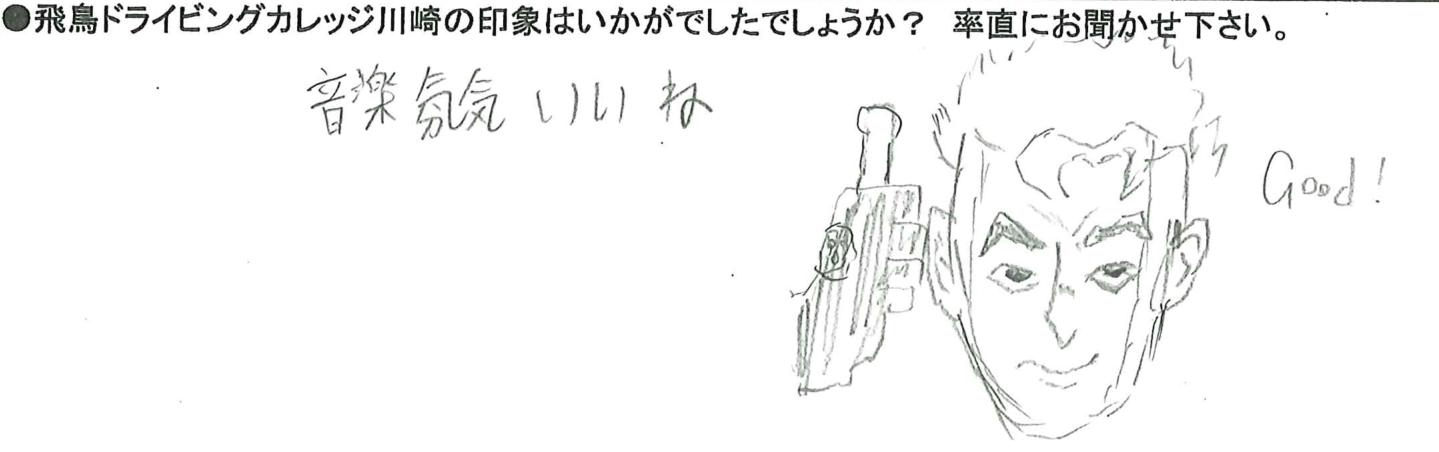 ●飛鳥ドライビングカレッジ川崎の印象はいかがでしたでしょうか？　率直にお聞かせ下さい。
音楽氛気いいね
Good!